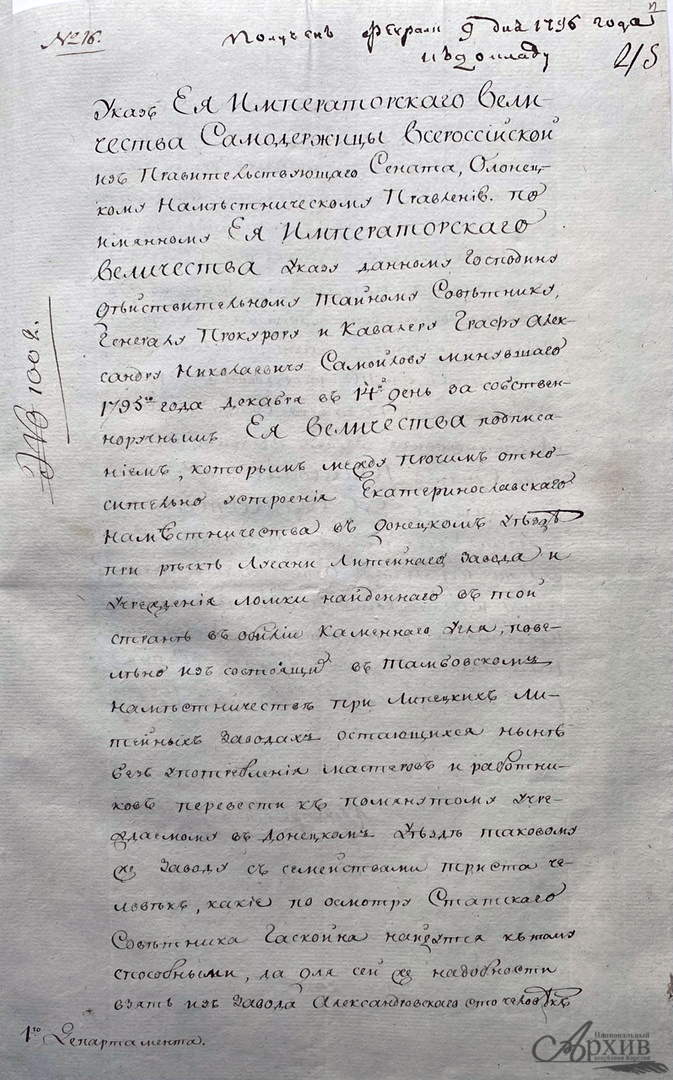 № 16.
Полученъ Февраля 9 дня 1796 года
къ докладу
215
Указъ Ея Императорскаго Вели-
чества Самодержицы Всероссійской
изъ Правительствующаго Сената, Олонец-
кому Намѣстническому Правленію. по
имянному Ея Императорскаго
величества указу данному Господину
дѣйствительному Тайному Совѣтнику,
Генералу Прокурору и Кавалеру Графу Алек-
сандру Николаевичу Самойлову минувшаго
1795го года декабря въ 14й день за собствен-
норучнымъ Ея величества подписа-
ніемъ, которымъ между прочимъ отно-
сительно устроенія Екатеринославскаго
намѣстничества въ Донецкомъ уѣздѣ
при рѣчкѣ Лугани Литейнаго завода и
учрежденія ломки найденнаго въ той
странѣ въ обиліи каменнаго угля, пове-
лѣно изъ состоящихъ въ Тамбовскомъ
намѣстничествѣ при Липецкихъ Ли-
тейныхъ заводахъ остающихся нынѣ
безъ употребленія мастеровъ и работни-
ковъ перевести къ помянутому учре-
ждаемому въ Донецкомъ уѣздѣ таковому
же заводу съ семействами триста че-
ловѣкъ, какіе по осмотру Статскаго
Совѣтника Гаскойна найдутся къ тому
способными, да для сей же надобности
взять изъ завода Александровскаго сто человѣкъ
1го Департамента.
1002.
Национальный
Архив
республики Карелия